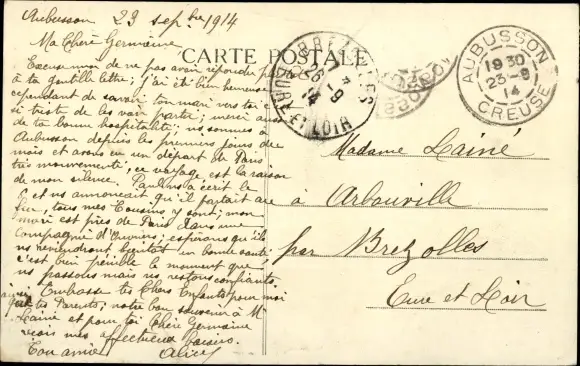 Aubusson 23 septbre 1914
Ma Chère Germaine
Excuse moi de ne pas avoir répondu
à ta gentille lettre; j'ai été bien heureuse
cependant de savoir ton mari vers toi
si triste de les voir partir; merci
de ta bonne hospitalité; ns sommes à
Aubusson depuis les premiers jours du
mois et avons eu un départ de Paris
très mouvementé, ce voyage est la raison
de mon silence. Paul ns a écrit le
et ns annonçait qu'il partait
feu, tous mes Cousins y sont; mon
mari est près de Paris dans une
Compagnie d'Ouvriers; espérons qu'ils
ns reviendront bientôt en bonne santé
c'est bien pénible le moment que
ns passons mais ns restons confiants.
Embrasse tes Chers Enfants pour moi
ainsi que tes Parents; notre bon souvenir à Mr
Lainé et pour toi Chère Germaine
mes affectueux baisers.
Ton amie Alice
CARTE POSTALE
EURE-ET-LOIR
AUBUSSON
19 30
23-9
14
CREUSE
Madame Lainé
à Arbouville
par Brezolles
Eure et Loir